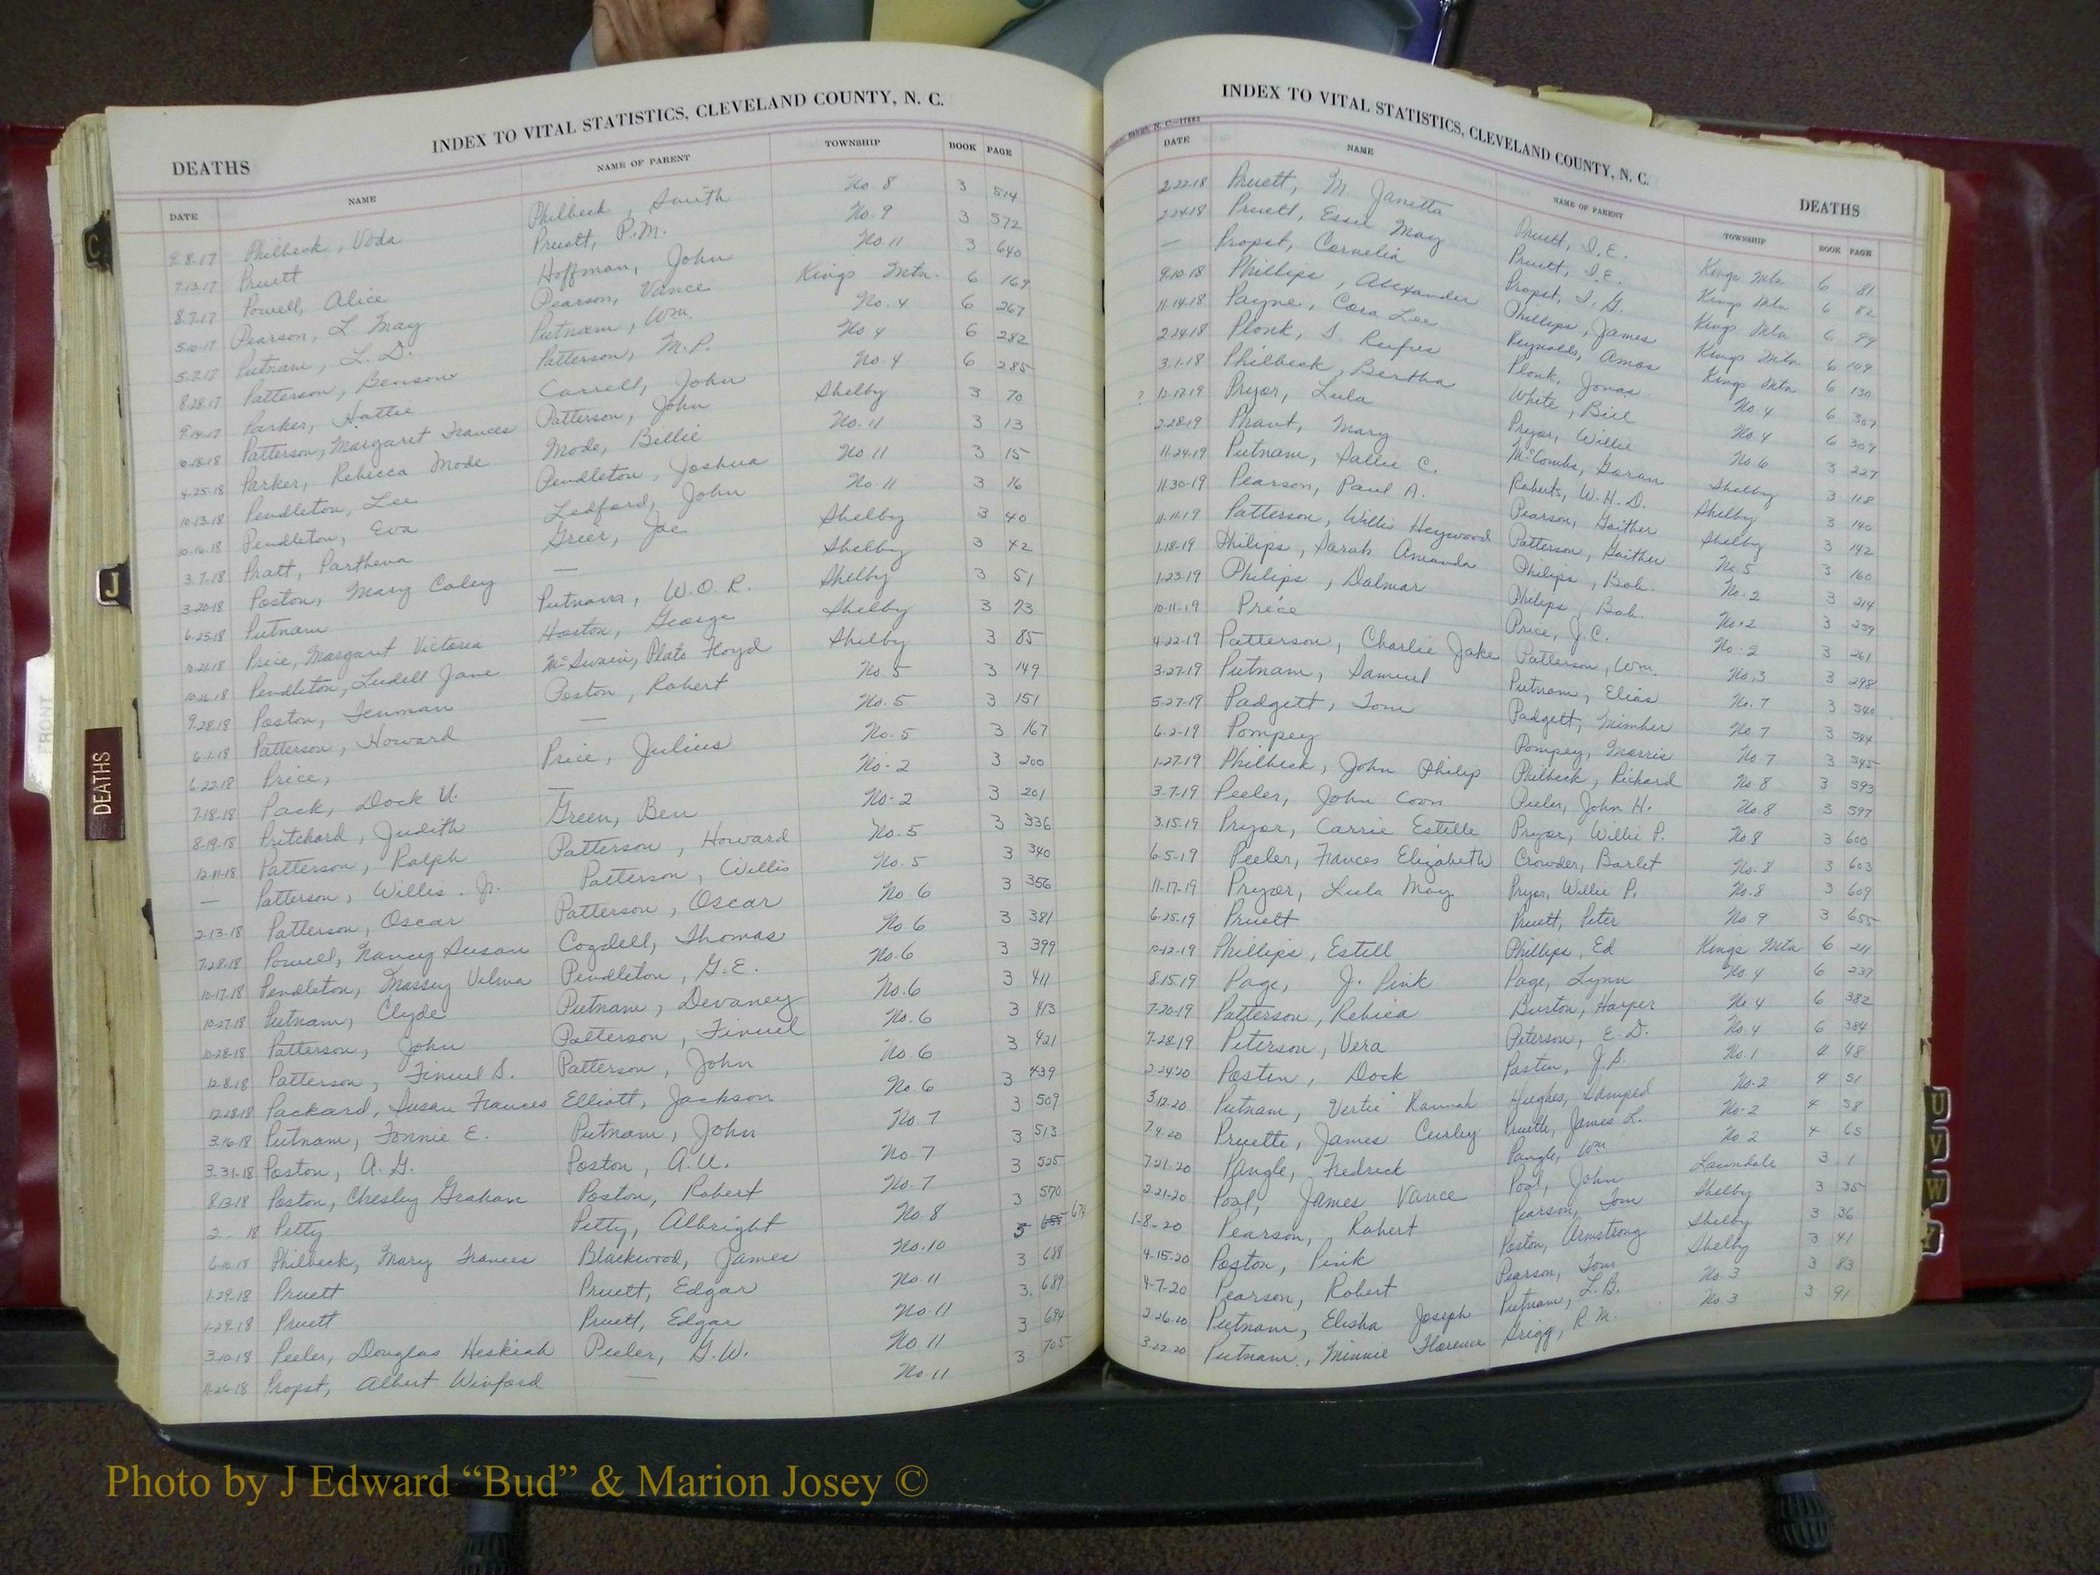 INDEX TO VITAL STATISTICS, CLEVELAND COUNTY, N. C.
DEATHS
DATE NAME NAME OF PARENT TOWNSHIP BOOK PAGE
9-8-17 Philbeck, Voda Philbeck, Smith No. 8 3 514
7-13-17 Pruett Pruett, P.M. No. 9 3 572
8-7-17 Powell, Alice Hoffman, John No. 11 3 640
5-10-17 Pearson, L. May Pearson, Vance Kings Mtn. 6 169
5-7-17 Putnam, L. D. Putnam, Wm. No. 4 6 267
8-28-17 Patterson, Benson Patterson, M. P. No. 4 6 282
9-14-17 Parker, Hattie Carrell, John No. 4 6 285
10-18-18 Patterson, Margaret Frances Patterson, John Shelby 3 70
4-25-18 Parker, Rebecca Mode Mode, Billie No. 11 3 13
10-13-18 Pendleton, Lee Pendleton, Joshua No. 11 3 15
10-16-18 Pendleton, Eva Ledford, John No. 11 3 16
3-7-18 Pratt, Parthena Greer, Joe Shelby 3 40
3-20-18 Poston, Mary Coley — Shelby 3 42
6-25-18 Putnam Putnam, W. O. R. Shelby 3 51
10-21-18 Price, Margaret Victoria Hoston, George Shelby 3 73
10-26-18 Pendleton, Ludell Jane McSwain, Plato Floyd Shelby 3 85
9-28-18 Poston, Fenman Poston, Robert No. 5 3 149
6-7-18 Patterson, Howard — No. 5 3 151
6-22-18 Price, Price, Julius No. 5 3 167
7-18-18 Pack, Dock U. — No. 2 3 200
8-19-18 Pritchard, Judith Green, Ben No. 2 3 201
12-11-18 Patterson, Ralph Patterson, Howard No. 5 3 336
— Patterson, Willis Jr. Patterson, Willis No. 5 3 340
2-13-18 Patterson, Oscar Patterson, Oscar No. 6 3 356
7-28-18 Powell, Nancy Susan Cogdell, Thomas No 6 3 381
10-17-18 Pendleton, Massey Velma Pendleton, G. E. No. 6 3 399
10-27-18 Putnam, Clyde Putnam, Devaney No. 6 3 411
10-28-18 Patterson, John Patterson, Finuel No. 6 3 413
12-8-18 Patterson, Finuel S. Patterson, John No 6 3 421
12-28-18 Packard, Susan Frances Elliott, Jackson No. 6 3 439
3-16-18 Putnam, Fonnie E. Putnam, John No 7 3 509
3-31-18 Poston, A. G. Poston, A. U. No. 7 3 513
8-13-18 Poston, Chesley Graham Poston, Robert No. 7 3 525
2- 18 Petty Petty, Albright No. 8 3 570
6-10-18 Philbeck, Mary Frances Blackwood, James No. 10 3 655 674
1-29-18 Pruett Pruett, Edgar No. 11 3 688
1-29-18 Pruett Pruett, Edgar No. 11 3. 689
3-10-18 Peeler, Douglas Heskiah Peeler, G. W. No 11 3 694
11-26-18 Propst, Albert Winford — No. 11 3 705
INDEX TO VITAL STATISTICS, CLEVELAND COUNTY, N. C.
N. C.—17883
DEATHS
DATE NAME NAME OF PARENT TOWNSHIP BOOK PAGE
2-22-18 Pruett, M. Janetta Pruett, I. E. Kings Mtn 6 81
2-24-18 Pruett, Essie May Pruett, I. E. Kings Mtn 6 82
— Propst, Cornelia Propst, I. G. Kings Mtn 6 99
9-10-18 Phillips, Alexander Phillips, James Kings Mtn 6 109
11-14-18 Payne, Cora Lee Reynolds, Amos Kings Mtn 6 130
2-24-18 Plonk, S. Rufus Plonk, Jonas No. 4 6 307
3-1-18 Philbeck, Bertha White, Bill No. 4 6 309
? 12-17-19 Pryor, Lula Pryor, Willie No. 6 3 227
2-28-19 Phaut, Mary McCombs, Goran Shelby 3 118
11-24-19 Putnam, Sallie C. Roberts, W. H. D. Shelby 3 140
11-30-19 Pearson, Paul A. Pearson, Gaither Shelby 3 142
11-11-19 Patterson, Willis Heywood Patterson, Gaither No 5 3 160
1-18-19 Philips, Sarah Amanda Philips, Bob. No. 2 3 214
1-23-19 Philips, Dalmar Philips, Bob No. 2 3 239
10-11-19 Price Price, J. C. No. 2 3 261
4-22-19 Patterson, Charlie Jake Patterson, Wm. No. 3 3 298
3-27-19 Putnam, Samuel Putnam, Elias No. 7 3 540
5-27-19 Padgett, Tom Padgett, Mimher No 7 3 544
6-2-19 Pompey Pompey, Morris No 7 3 545
1-27-19 Philbeck, John Philip Philbeck, Richard No 8 3 593
3-7-19 Peeler, John Coon Peeler, John H. No 8 3 597
3-15-19 Pryor, Carrie Estelle Pryor, Willie P. No 8 3 600
6-5-19 Peeler, Frances Elizabeth Crowder, Barlet No. 8 3 603
11-17-19 Pryor, Lula May Pryor, Willie P. No. 8 3 609
6-25-19 Pruett Pruett, Peter No 9 3 655
10-12-19 Phillips, Estell Phillips, Ed Kings Mtn 6 211
8-15-19 Page, J. Pink Page, Lynn No. 4 6 237
7-20-19 Patterson, Rebica Burton, Harper No. 4 6 382
7-28-19 Peterson, Vera Peterson, E. D. No. 4 6 384
2-24-20 Posten, Dock Posten, J. S. No. 1 4 48
3-12-20 Putnam, Vertie Hannah Hughes, Damped No. 2 4 51
7-4-20 Pruette, James Curley Pruette, James L. No. 2 4 58
7-21-20 Pangle, Fredrick Pangle, Wm. No 2 4 65
2-21-20 Pool, James Vance Pool, John Lawndale 3 1
1-8-20 Pearson, Robert Pearson, Tom Shelby 3 35
4-15-20 Poston, Pink Poston, Armstrong Shelby 3 36
4-7-20 Pearson, Robert Pearson, Tom Shelby 3 41
2-26-20 Putnam, Elisha Joseph Putnam, L. B. No. 3 3 83
3-22-20 Putnam, Minnie Florence Grigg, R. M. No. 3 3 91
C
J
DEATHS
FRONT
U
V
W
Y
Photo by J Edward “Bud” & Marion Josey ©